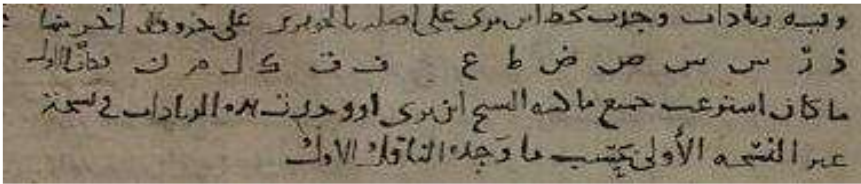 وفيه زيادات وجدت بخط ابن بري على اصله بالجوهري على حروف اخرها
ذ ز س ش ص ض ط ع ف ق ك ل م ن وكأن الاول
ما كان استوعب جميع ما كتبه الشيخ ابن بري او وجدت هذه الزيادات في نسخة
غير النسخه الأولى ما وجده الناقل الاول